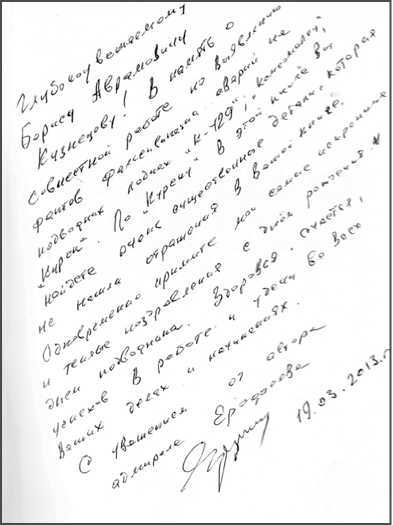 Глубоко уважаемому
Борису Аврамовичу
Кузнецову! В память о
совместной работе по выявлению
фактов фальсификации аварий на
подводных лодках "К-129", "Комсомолец",
"Курск". По "Курску" в этой книге Вы
найдете очень существенное детали, которая
не нашла отражения в Вашей книге.
Одновременно примите мои самые искренние
и теплые поздравления с днём рождения и
днем подводника. Здоровья, счастья,
успехов в работе и удачи во всех
Ваших делах и начинаниях.
С уважением от автора
адмирала
19.03.2013 г